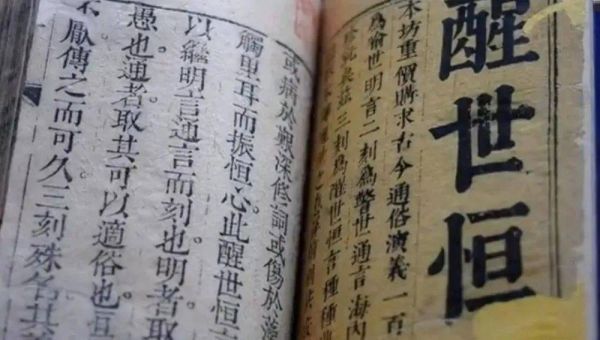 醒世恒
本坊重價購求古今通俗演義一百
為喻世明言二刻為警世通言海內
珍玩矣茲三刻為醒世恒言種種
或病於艱深修詞或傷於藻
觸里耳而振恒心此醒世恒言
以繼明言通言而刻也。明者。取
愚也。通者取其可以適俗也。恒
不厭傳之而可久三刻殊名其義